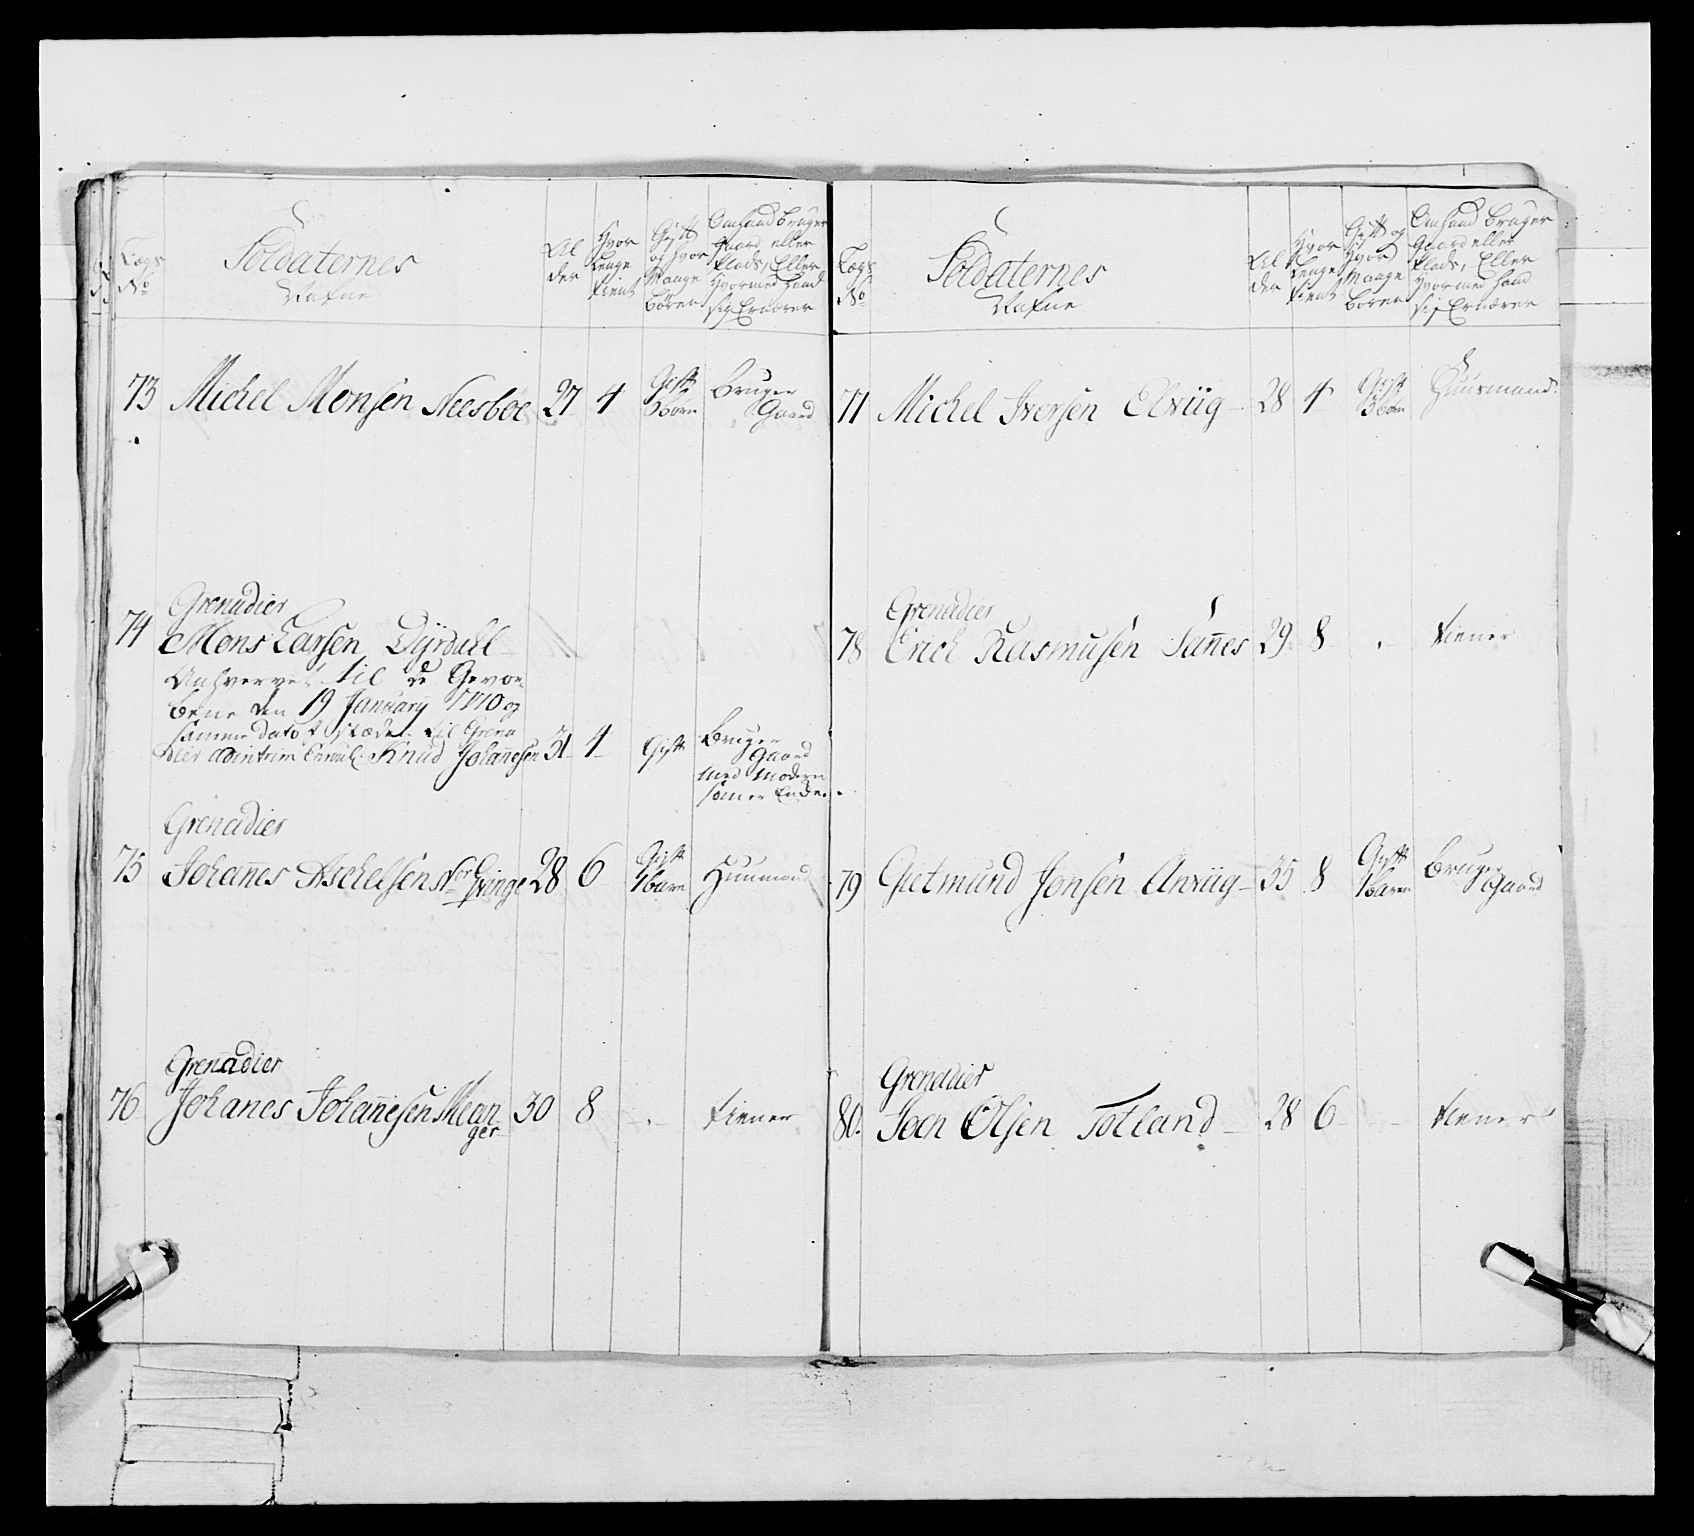 Lægs No
Soldaternes Nafne
Al der
Hvor Lenge tient
Gift og hvor Mange Börn
Om hand bruger Gaard eller Plads, Eller Hvormed hand sig Ernærer
73 Michel Monsen Neesböe 27 4 Gift 3 börn Bruger Gaard
Grenadier
74 Mons Larsen Dÿrdahl
Anhvervet til de Gevor
bene den 19 January 1770 og
samme dato i stæden til Grena
dier Knud Johannesen 31 4 Gift Bruger Gaard
med Modern
Grenadier
75 Johannes Aschelsen Nor Qvinge 28 6 Gift 1 barn Huusmand
Grenadier
76 Johanes Johannesen Mean
ger 30 8 - . - tiener
Lægs No
Soldaternes Nafne
Al der
Hvor Lenge tient
Gift og Hvor Mange Börn
Om hand bruger Gaard eller Plads, Eller Hvormed hand sig Ernærer
77 Michel Iversen Elviig 28 4 Gift 3 börn Huusmand.
Grenadier
78 Erich Rasmusen Sannes 29 8 - . - tiener
79 Gietmund Jonsen Anviig 35 8 Gift 1 barn Bruger Gaard
Grenadier
80. Joen Olsen Totland 28 6 - tiener